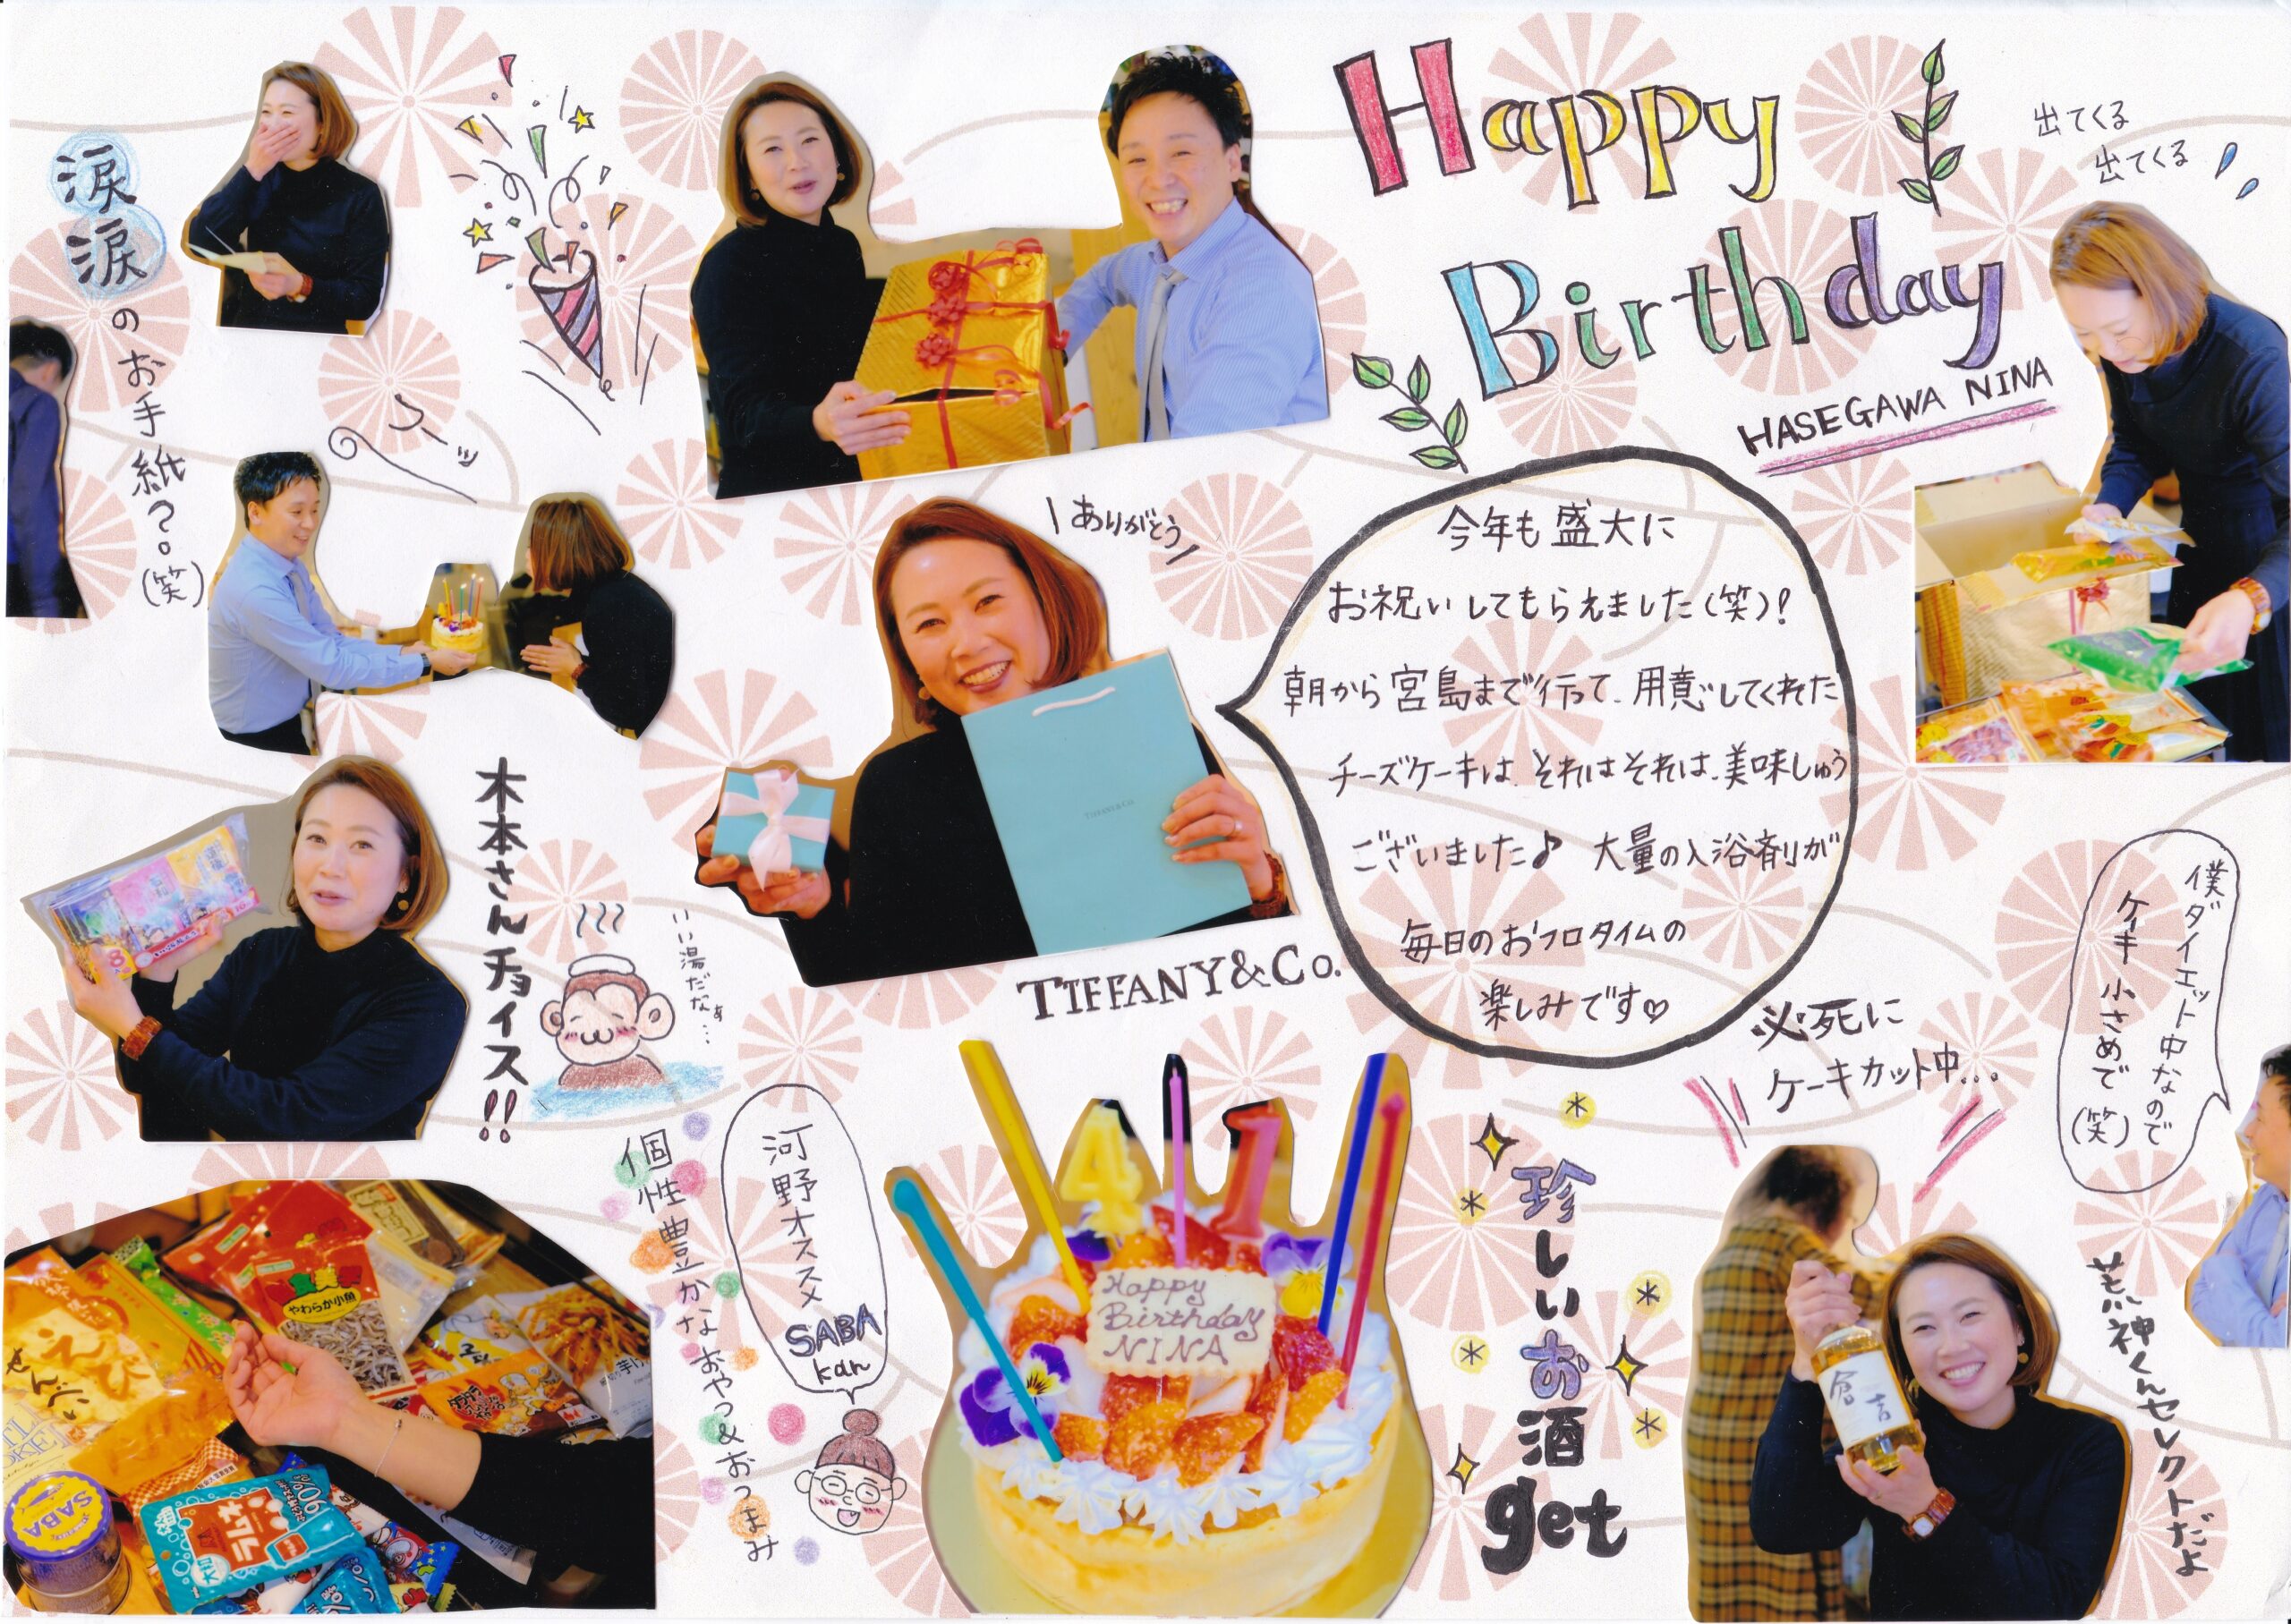 Happy
Birthday
HASEGAWA NINA
出てくる
出てくる
涙涙のお手紙?。(笑)
スーッ
\ありがとう/
今年も盛大に
お祝いしてもらえました(笑)!
朝から宮島まで行って、用意してくれた
チーズケーキは、それはそれは、美味しゅう
ございました♪ 大量の入浴剤が
毎日のおフロタイムの
楽しみです♡
TIFFANY&Co.
TIFFANY&CO.
木本さんチョイス!!
いい湯だなぁ…
8
個性豊かなおやつ&おつまみ
河野オススメ
SABA
kan
えび
せんべい
やわらか小魚
SABA
ラムネ
90%
41
Happy
Birthday
NINA
珍しいお酒
get
必死に
ケーキカット中…
僕ダイエット中なので
ケーキ小さめで(笑)
倉吉
荒神くんセレクトだよ